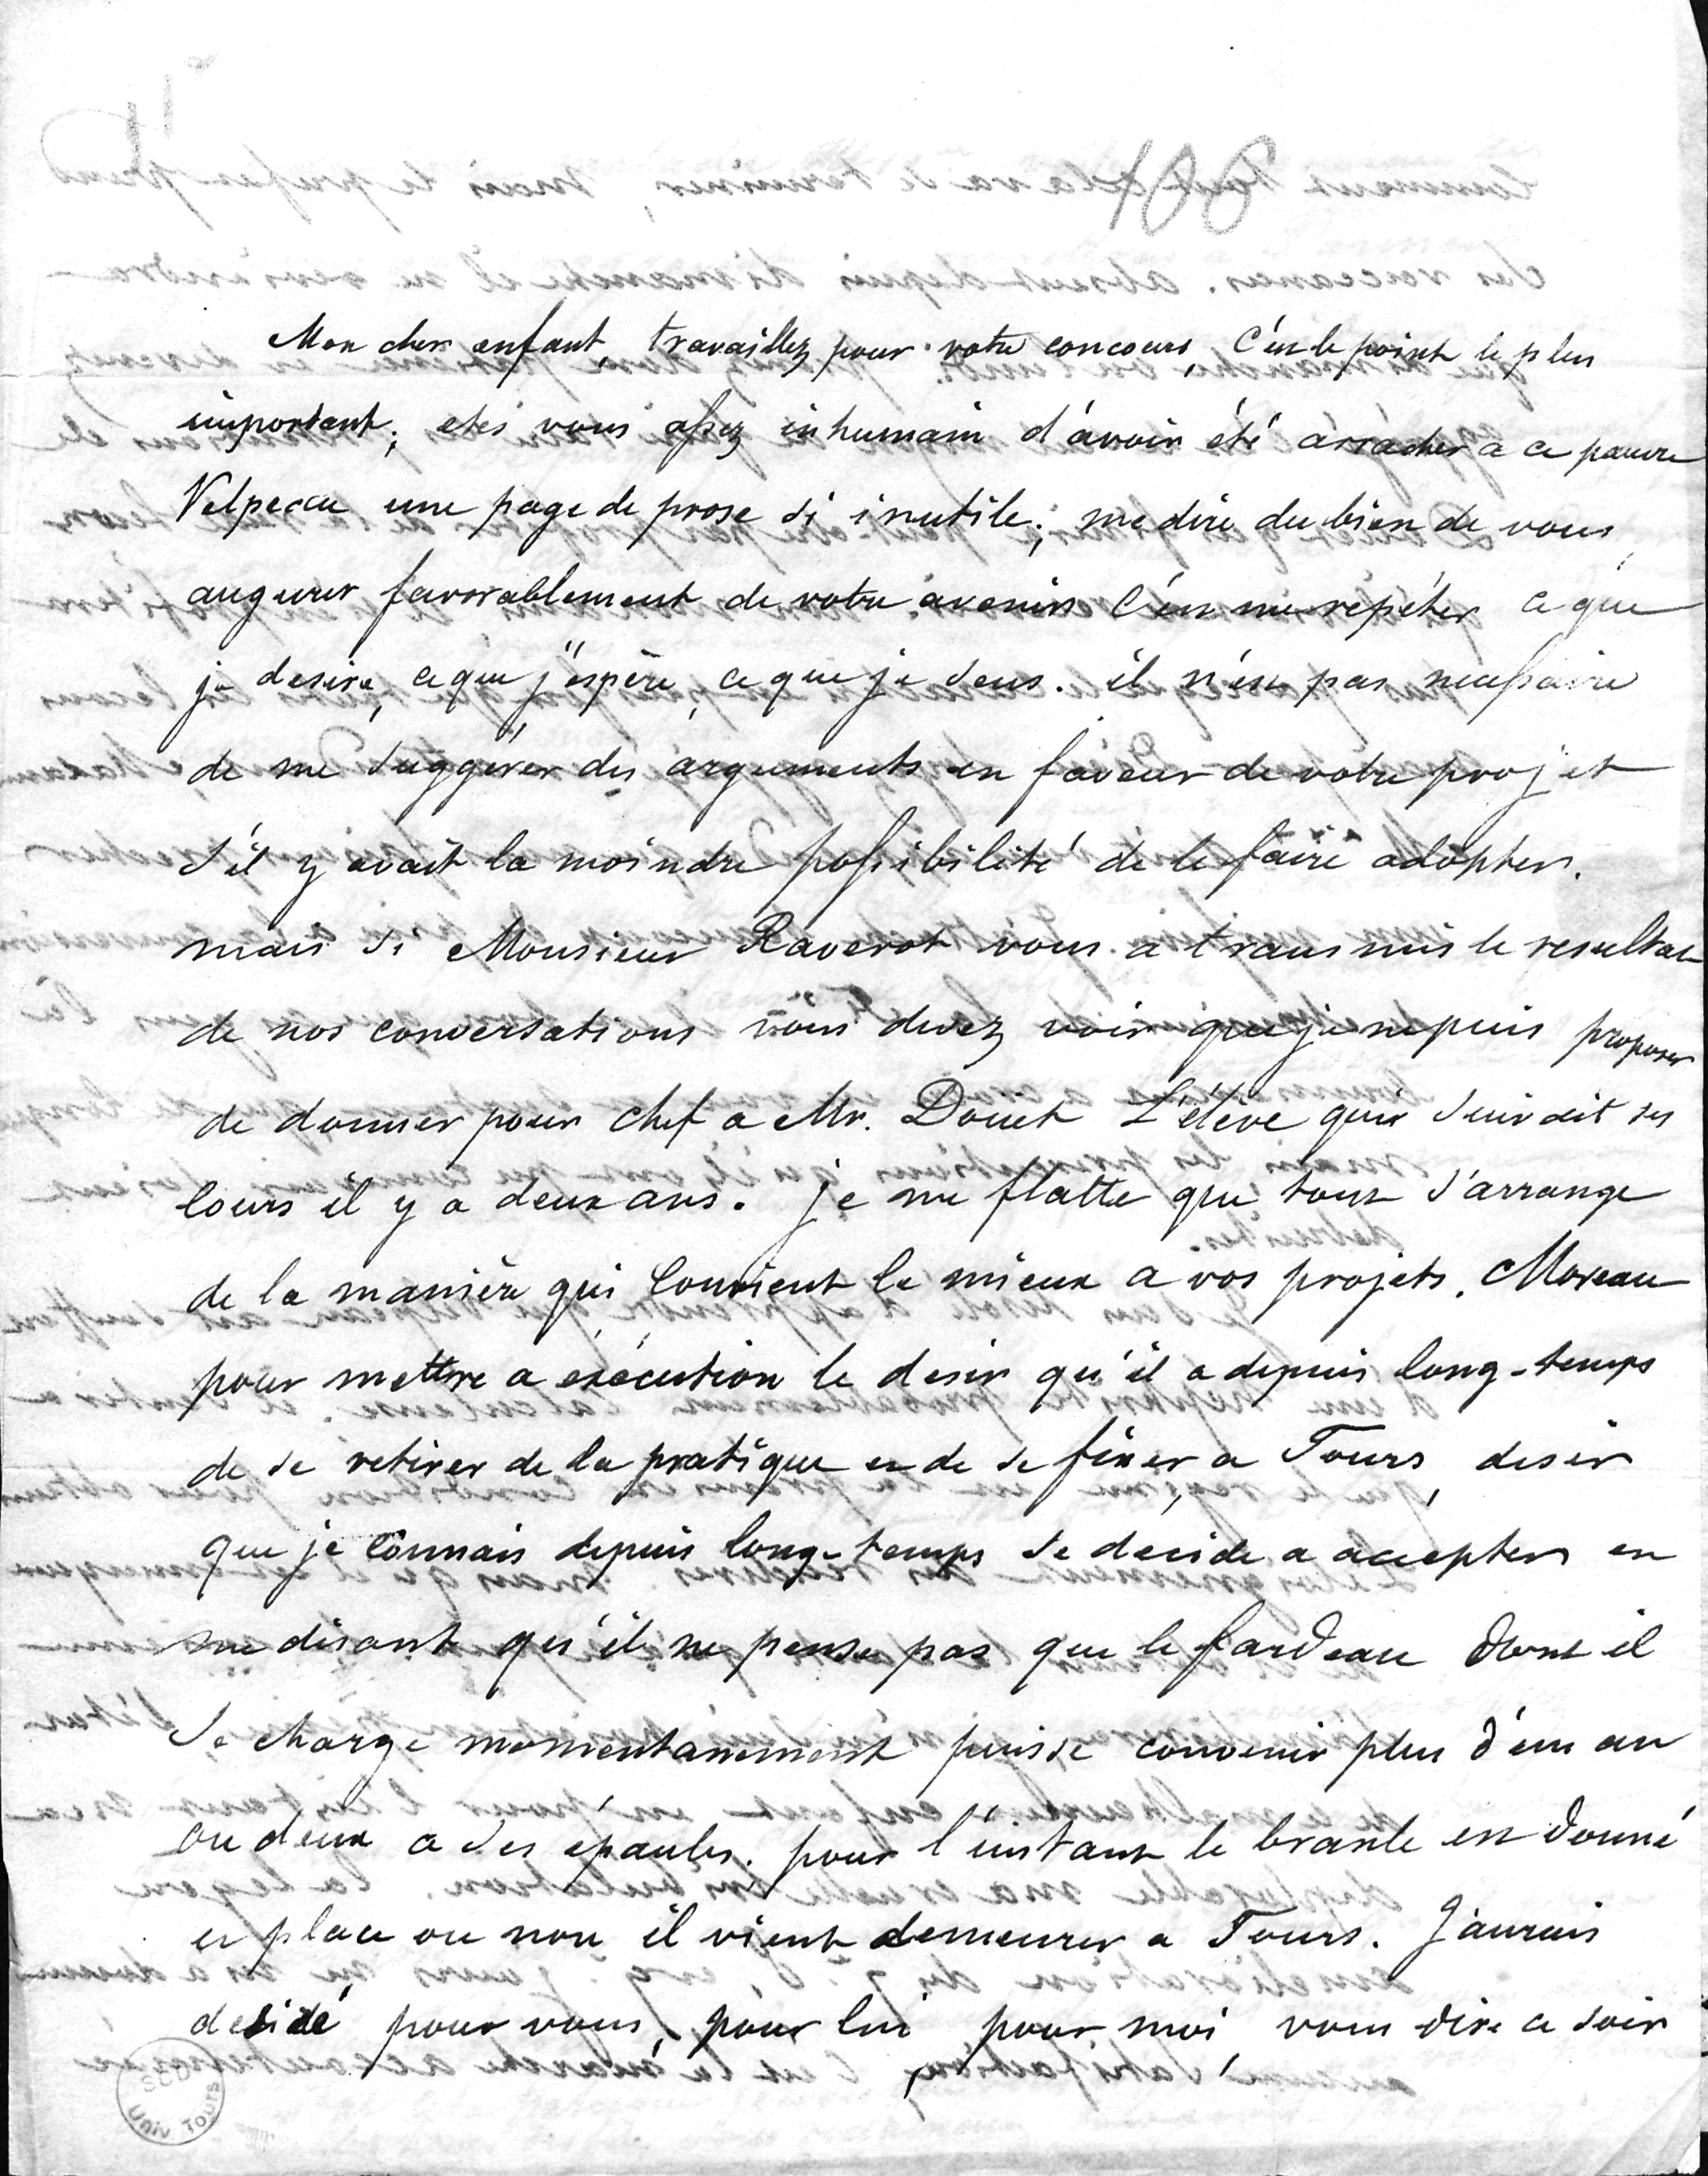 Mon cher enfant, travaillez pour votre concours, c'est le point le plus
important; etes vous assez inhumain d'avoir été arracher a ce pauvre
Velpeau une page de prose si inutile; me dire du bien de vous,
augurer favorablement de votre avenir c'est me repéter ce que
je desire, ce que j'espère, ce que je sens. il n'est pas necessaire
de me suggérer des arguments en faveur de votre projet
s'il y avait la moindre possibilité de le faire adopter.
mais si Monsieur Raverot vous a transmis le resultat
de nos conversations vous devez voir que je ne puis proposer
de donner pour chef a Mr. Douet L'éleve qui suivait ses
cours il y a deux ans. je me flatte que tout s'arrange
de la manière qui convient le mieux a vos projets. Moreau
pour mettre a exécution le desir qu'il a depuis long-temps
de se retirer de la pratique et de se fixer, a Tours, desir
que je connais depuis long-temps se decide a accepter en
me disant qu'il ne pense pas que le fardeau dont il
se charge momentanement puisse convenir plus d'un an
ou deux a ses épaules. pour l'instant le branle est donné
et place ou non il vient demeurer a Tours. J'aurais
desiré pour vous, pour lui, pour moi, vous dire ce soir
SCD
Univ. Tours